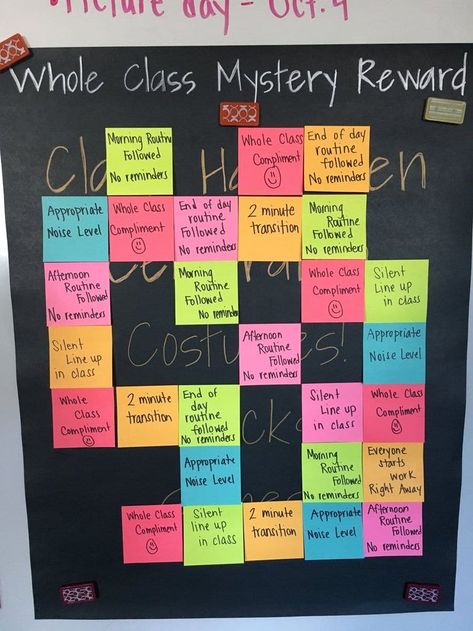 • Picture day - Oct. 4
Whole Class Mystery Reward
Morning Routine
Followed
No reminders
Whole Class
Compliment
End of day
routine
followed
No reminders
Appropriate
Noise Level
Whole Class
Compliment
End of day
routine
Followed
No reminders
2 minute
transition
Morning
Routine
Followed
No reminders
Afternoon
Routine
Followed
No reminders
Morning
Routine
Followed
No reminders
Whole Class
Compliment
Silent
Line up
in class
Silent
Line up
in class
Afternoon
Routine
Followed
No reminders
Appropriate
Noise Level
Whole
Class
Compliment
2 minute
transition
End of
day
routine
followed
No reminders
Silent
Line up
in class
Whole
Class
Compliment
Appropriate
Noise Level
Morning
Routine
Followed
No reminders
Everyone
starts
work
Right Away
Whole Class
Compliment
Silent
line up
in class
2 minute
transition
Appropriate
Noise Level
Afternoon
Routine
Followed
No reminders